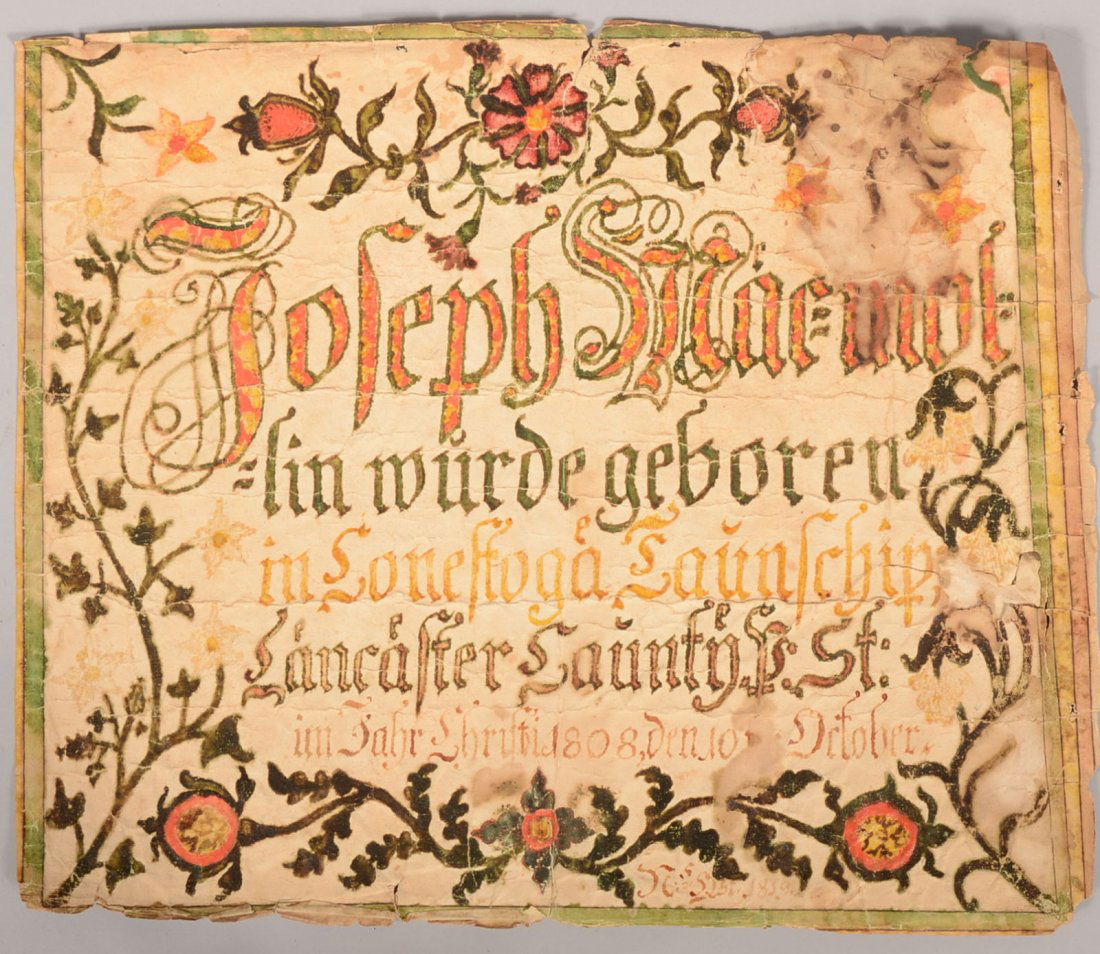 Joseph Mär=mol=
=lin würde geboren
in Conestogä Taünschip,
Läncäster Caüntÿ, P. St:
im Jahr Christi 1808, den 10 October.
1819